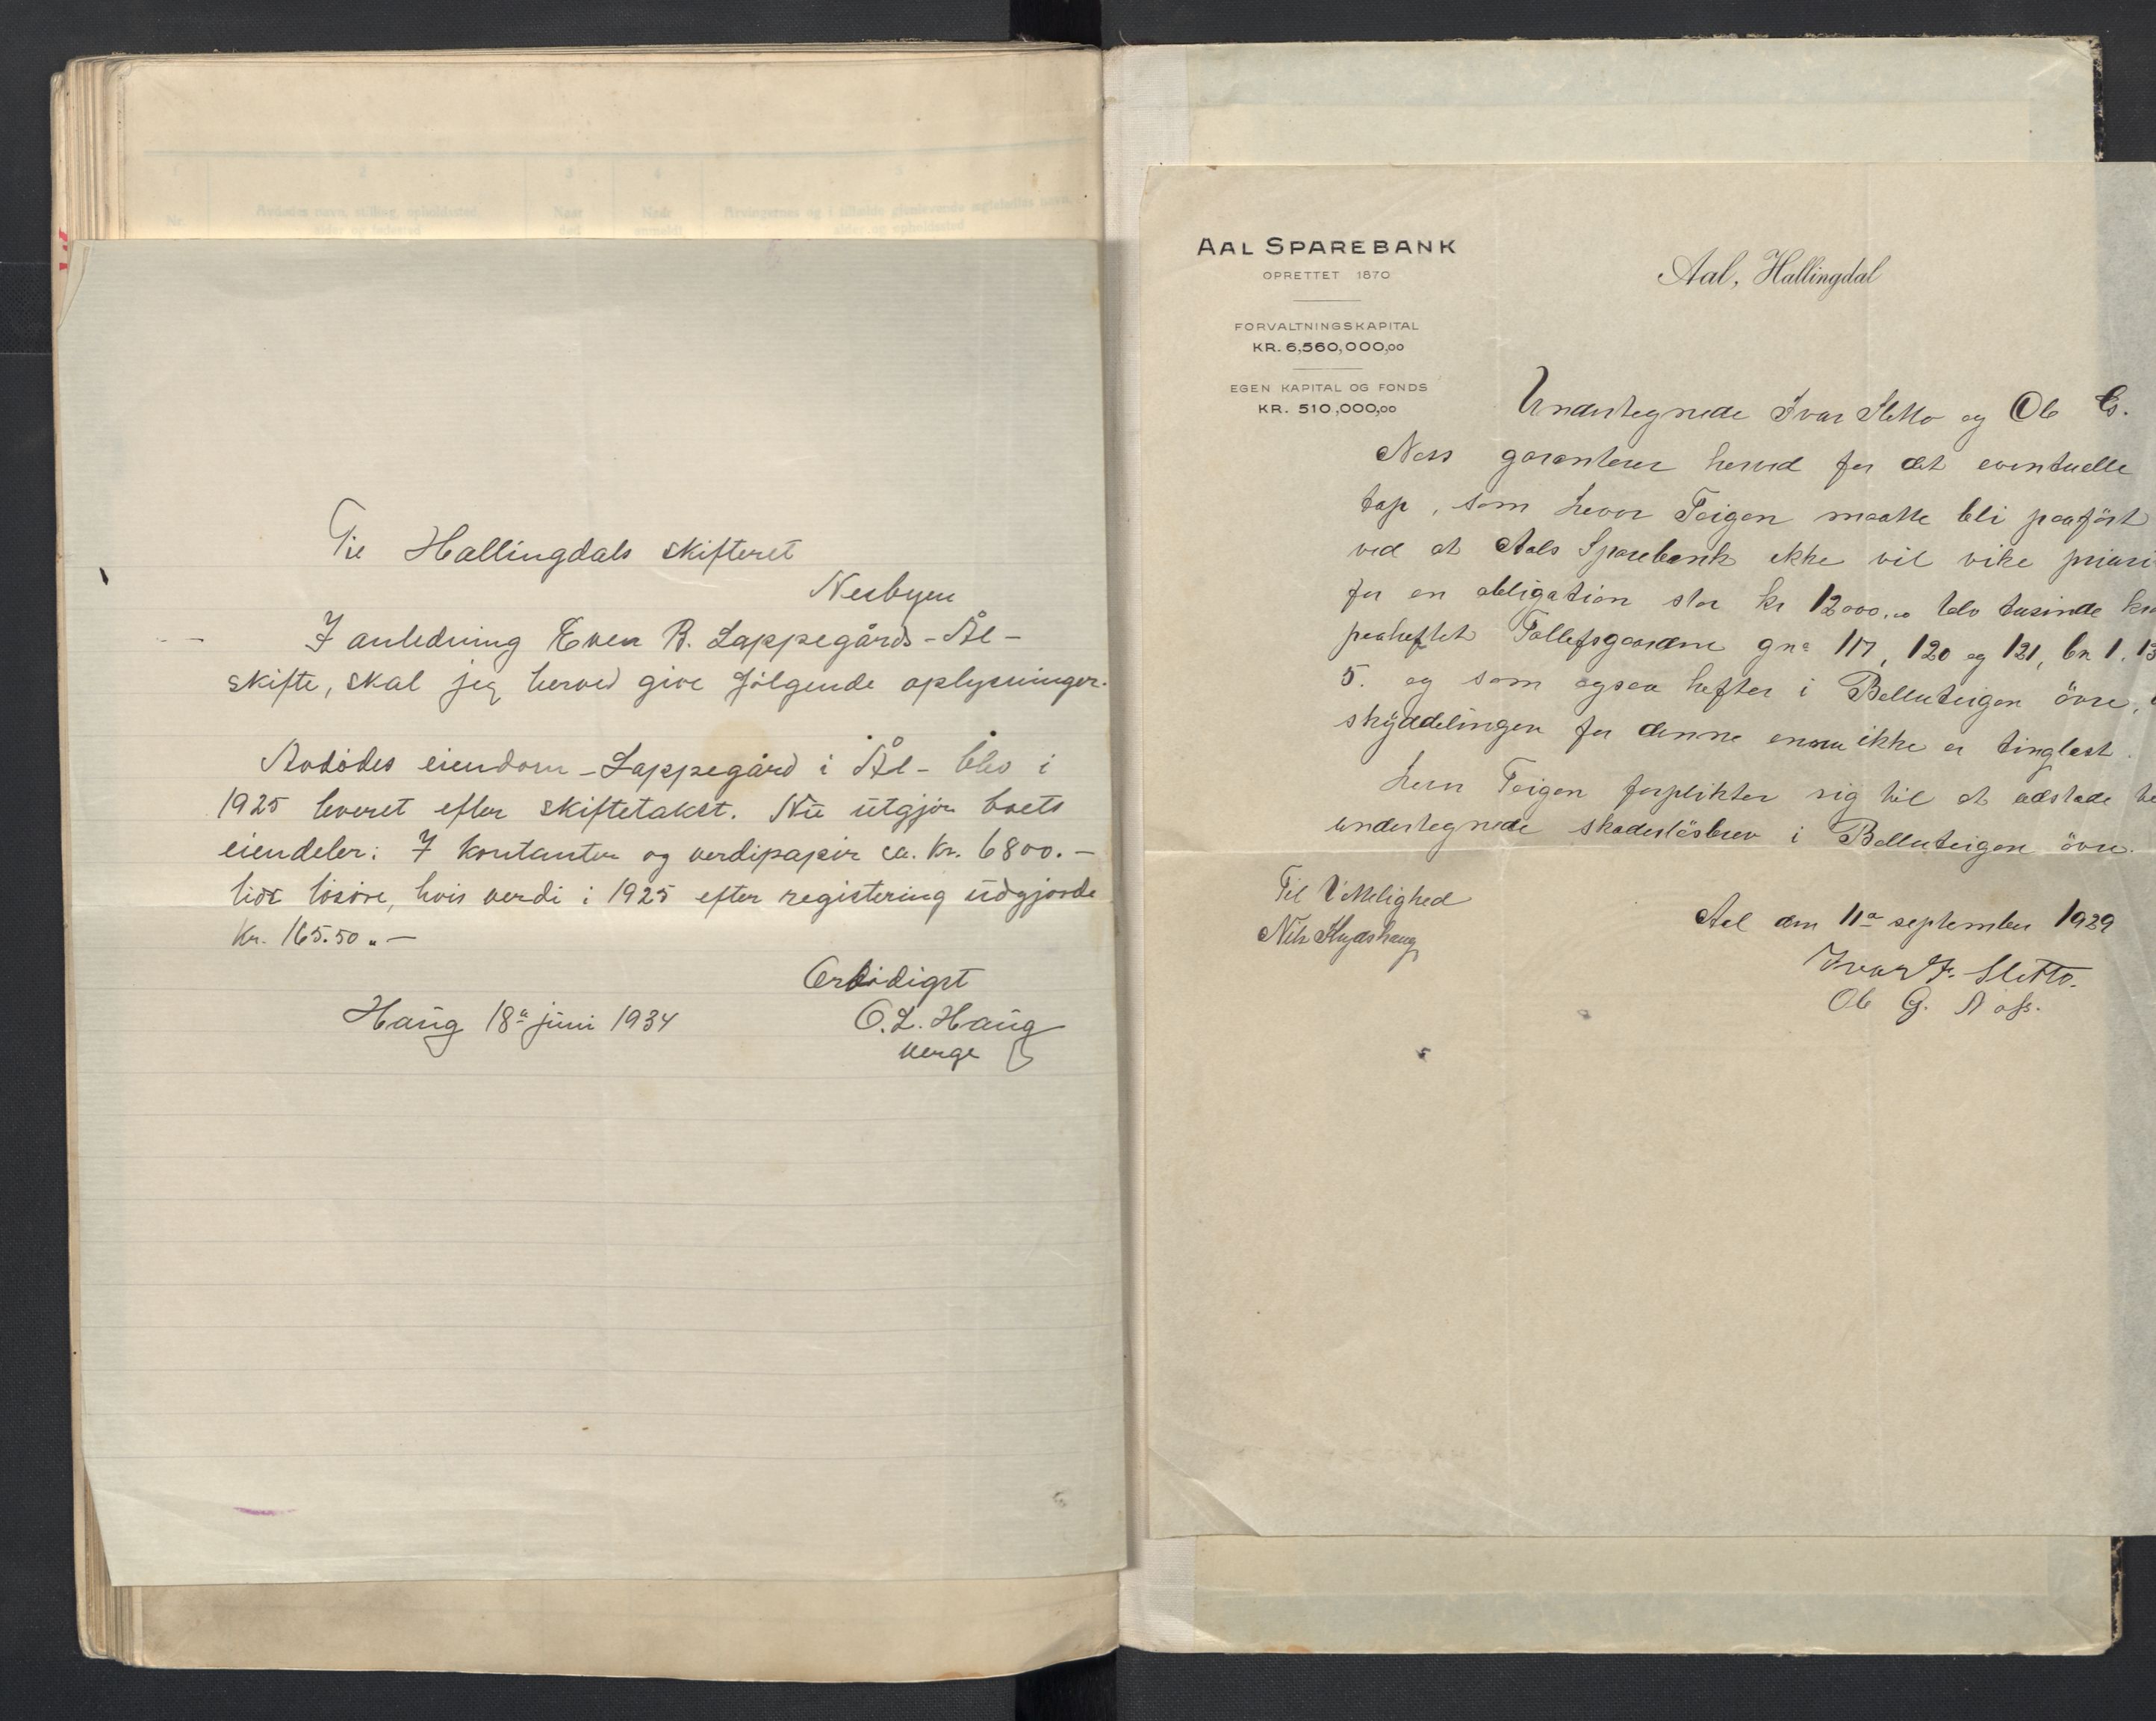 Til Hallingdals skifteret
Nesbyen
I anledning Even R. Lappegårds - Ål -
skifte, skal jeg herved give følgende oplysninger.
Avdødes eiendom - Lappegård i Ål - blev i
1925 leveret efter skiftetakst. Nu utgjør boets
eiendeler: I kontanter og verdipapir ca. kr. 6800.-
lidt løsøre, hvis verdi i 1925 efter registering udgjorde
Kr. 165.50 „ -
Ærbødigst
Haug 18de juni 1934 O. L. Haug
verge
AAL SPAREBANK
OPRETTET 1870
FORVALTNINGSKAPITAL
KR. 6,560,000,00
EGEN KAPITAL OG FONDS
KR. 510,000,00
Aal, Hallingdal
Undertegnede Ivar Sletto og Ole G.
Næss garanterer herved for det eventuelle
tap, som Teigen maatte bli paaført
ved at Aals Sparebank ikke vil vike priori
for en obligation stor kr 12000,00 tolv tusinde kr
paaheftet Tollefsgaardene gno 117, 120 og 121, bn 1, 13
5. og som ogsaa hefter i Belluteigen övre,
skyddelingen for denne ennu ikke er tinglest.
Teigen forplikter sig til at utstede
undertegnede skadeslösbrev i Belluteigen övre.
Til Vitterlighed
Nils
Aal den 11te september 1929
Ivar F. Sletto.
Ole G. Næss.
Nr.
Avdødes navn, stilling, opholdssted
alder og fødested
Naar
død
Naar
anmeldt
Arvingernes og i tilfælde gjenlevende ægtefælles navn,
alder og opholdssted